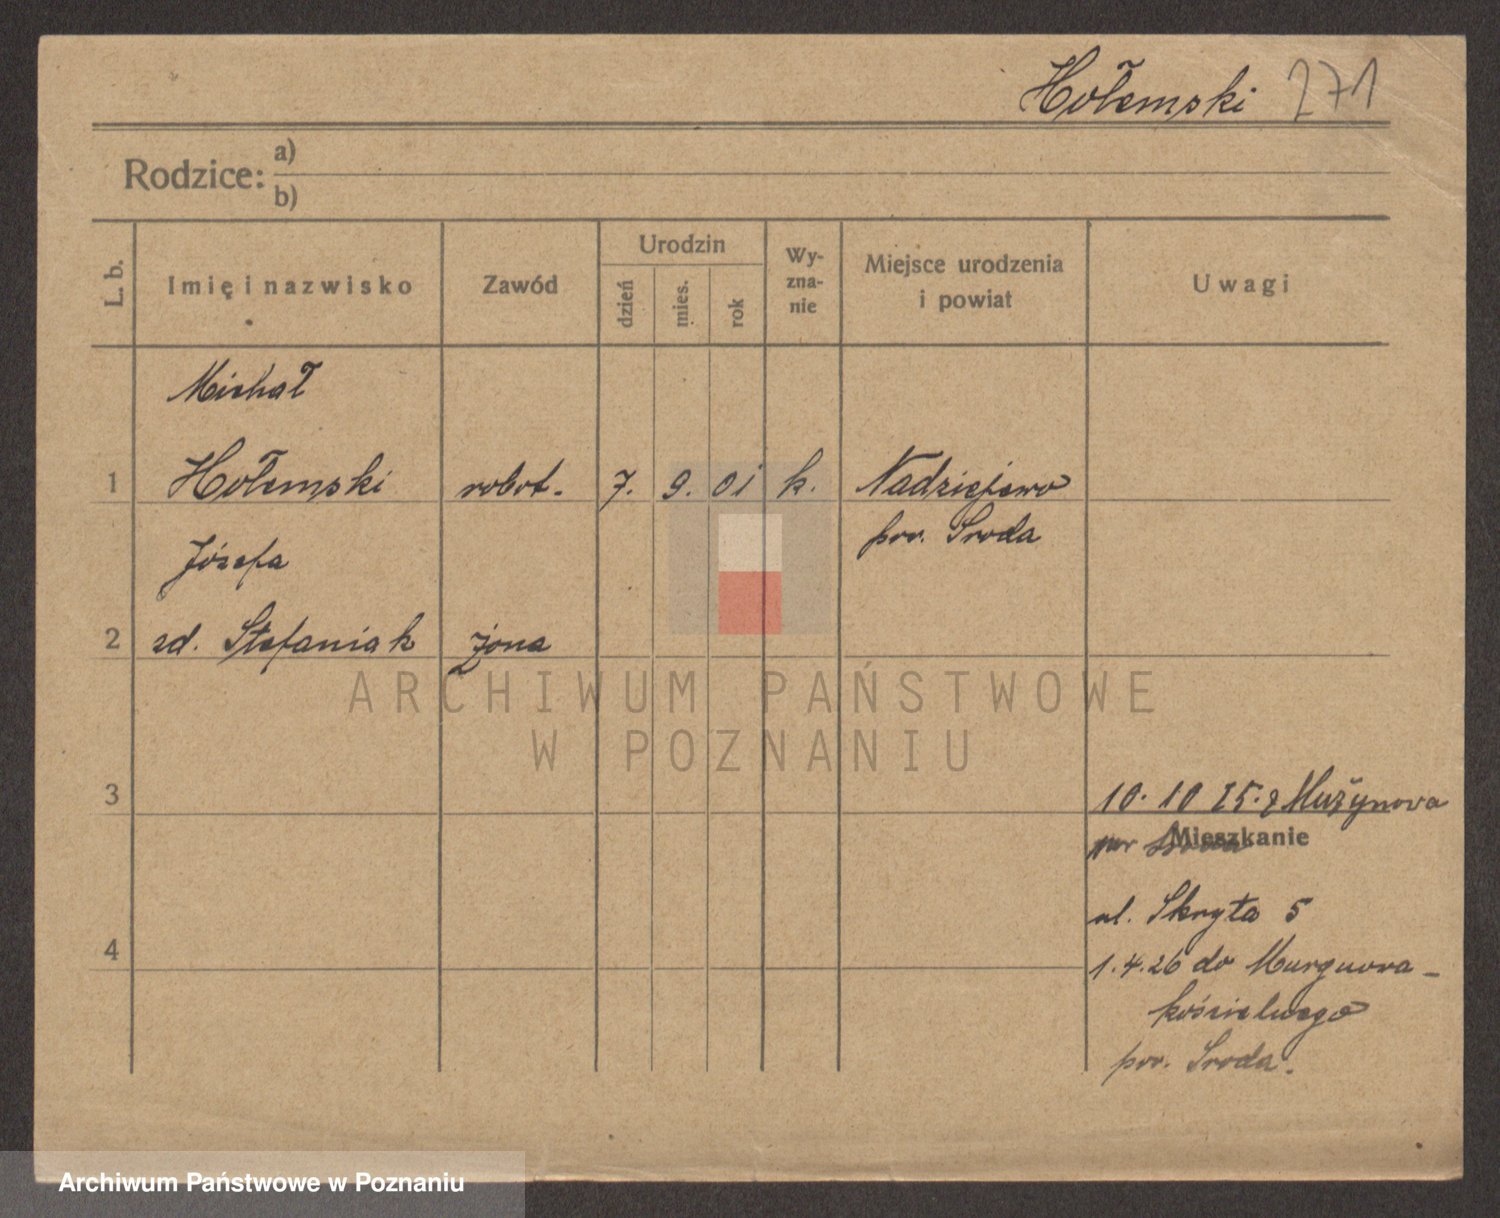 Hołemski 271
Rodzice: a)
b)
L. b.
Imię i nazwisko
Zawód
Urodzin
dzień
mies.
rok
Wy-
zna-
nie
Miejsce urodzenia
i powiat
Uwagi
Michał
1 Hołemski robot. 7. 9. 01 k. Nadziejewo
pow. Środa
Józefa
2 zd. Stefaniak żona
ARCHIWUM PAŃSTWOWE
W POZNANIU
3 10. 10 25. z
Mieszkanie
ul. Skryta 5
4 1.4.26 do
kościelnego
pow. Środa.
Archiwum Państwowe w Poznaniu